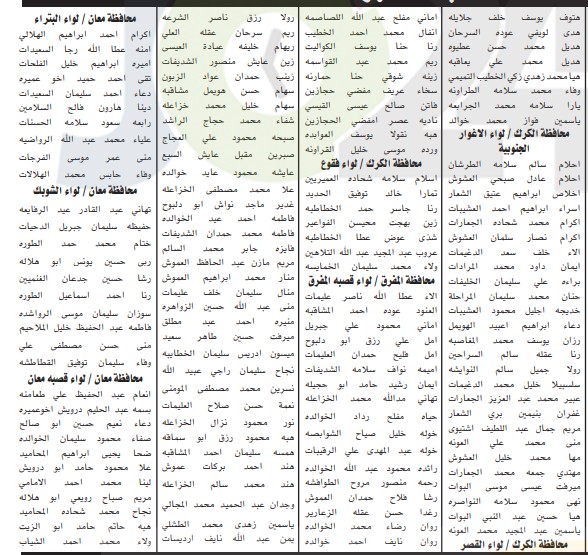 هتوف يوسف خلف جلايله
هدى لويفي عوده السرحان
هديل محمد حسن عطيوه
هديل محمد علي يعاقبه
هيا محمد زهدي زكي الخطيب التميمي
وفاء محمد سلامه الطراونه
يارا سلامه محمد الجرابعه
ياسمين فواز محمد خوالد
محافظة الكرك / لواء الاغوار
الجنوبية
احلام سالم سلامه الطرشان
احلام عادل صبحي العشوش
اخلاص ابراهيم عتيق الشعار
اسراء ابراهيم احمد العشيبات
اكرام محمد شحاده الجعارات
اكرام نصار سلمان العشوش
الاء خلف سعد الدغيمات
ايمان داود محمد المرادات
براءه علي سليمان الخليفات
حنان محمد سليمان المراحلة
خديجه اجليل محمود العشيبات
دعاء ابراهيم اعبيد الهويمل
رزان يوسف محمد المغاصبه
رنا عقله سالم السراحين
رولا جميل سالم النوايشه
سلسبيلا خليل محمد الدغيمات
عبير محمد عبد العزيز الجعارات
غفران بنيمين بري الشعار
مريم جمال عبد اللطيف اشتيوي
منى محمد علي العونه
مها محمد خليل العشوش
مهتدي جمعه محمد الجعارات
ميرفت عيسى موسى البوات
نهى محمود سلامه النواصره
هيا حسين عبد النبي البوات
ياسمين عبد المجيد محمد العونه
محافظة الكرك / لواء القصر
اماني مفلح عبد الله اللصاصمه
انفال محمد احمد الخطيب
رنا حنا يوسف الكواليت
ريم محمد عبد القواسمه
زينه شوقي حنا حمارنه
سخاء عريف مفضي حجازين
فاتن صالح عيسى القيسي
ناديه عصر امفضي الحجازين
هبه نقولا يوسف العوابده
ورده موسى خليل القراونه
محافظة الكرك / لواء فقوع
اسلام سلامه شحاده العميريين
تمارا خالد توفيق الحديد
رنا جاسر حمد الخطاطبه
زين بهجت محيسن الفواعير
شذى عوض عطا الخطاطبه
عروب عبد المجيد عبد الله التلاهين
ولاء محمد سليمان الخمايسه
محافظة المفرق / لواء قصبه المفرق
الاء عطا الله ناصر عليمات
العنود عوده احمد المشاقبه
اماني محمود علي جبريل
امل علي رزق ابو دلبوح
امل فليح حمدان العليمات
اميمه نوافه سلامه الشديفات
ايمان رشيد حامد ابو حجيله
تهاني مدالله محمد الخزاعله
حياه مفلح رداد الخوالده
خوله خليل صباح الشوابصه
خوله عبد المهدي علي الرقيبات
رائده محمود عبد الله الخوالده
رحمه منصور مروح الطوافشه
رشا فلاح حمدان العموش
رغدا حسن عقله الزعارير
روان رضاء محمد الخوالده
روان نايف احمد خوالده
رولا رزق ناصر الشرعه
ريم سرحان عقله العلي
ريهام خليفه عيادة العيسى
زين عايش منصور الشديفات
زينب حمدان عواد الزبون
سهام حسن هويمل مشاقبة
سهام خليل محمد خزاعله
شفاء محمد حجاج الراشد
صبحه محمود علي العجاج
صبرين مقبل عايش السبع
عايشه محمود عايد خوالده
علا محمد مصطفى الخزاعله
غدير ماجد نواش ابو دلبوح
فاطمه احمد عبد الخوالده
فاطمه محمد حمدان الشديفات
فايزه جابر محمد السالم
مريم مازن عبد الحافظ العموش
منار محمد ابراهيم العموش
منال سليمان خلف عليمات
منى عبد الله حسين الزواهره
منيره احمد عبد مطلق
ميرفت حسين طاهر سعيد
ميسون ادريس سليمان الخطايبه
نجاح سليمان راجي عبيد الله
نسرين محمد مصطفى المومني
نعمة حسن صلاح العليمات
نور محمود نزال الخزاعله
هبه محمود رزق ابو سماقه
همسه سليمان احمد المشاقبة
هند احمد بركات عموش
هند محمد سالم الخزاعله
وجدان عبد الحميد محمد المجالي
ياسمين زهدى محمد الطشلي
يمن عبد الله نايف ارديسات
محافظة معان / لواء البتراء
اكرام احمد ابراهيم الهلالي
امنه عطا الله رجا السعيدات
اميره ابراهيم خليل الفلحات
تقى احمد حميد اخو عميره
دعاء احمد سليمان السعيدات
دينا هارون فالح السلامين
رابعه سعود سلامه الحسنات
علياء محمد عبد الله الرواضيه
منى عمر موسى الفرجات
وفاء حابس محمد الهلالات
محافظة معان / لواء الشوبك
تهاني عبد القادر عيد الرفايعه
حفيظه سليمان جبريل الدحيات
ختام محمد حمد الطوره
ربى حسين يونس ابو هلاله
رشا حسين جدعان الغنميين
رنا احمد اسماعيل الطوره
سوزان سليمان موسى الرواشده
فاطمه عبد الحفيظ خليل الملاحيم
منى حسن مصطفى علي
وفاء سليمان توفيق القتاطشه
محافظة معان / لواء قصبه معان
انعام عبد الحفيظ علي طعامنه
بسمه عبد الحليم درويش اخوعميره
دعاء نعيم حسين ابو صالح
صفاء محمود سليمان الخوالده
ضحا يحيى ابراهيم المحاميد
علا محمود حامد ابو درويش
لينا محمد احمد الامامي
مريم صباح رويعي ابو هلاله
نجاح محمد شحاده المحاميد
هبه حاتم حامد ابو الزيت
ولاء محمد احمد الشياب